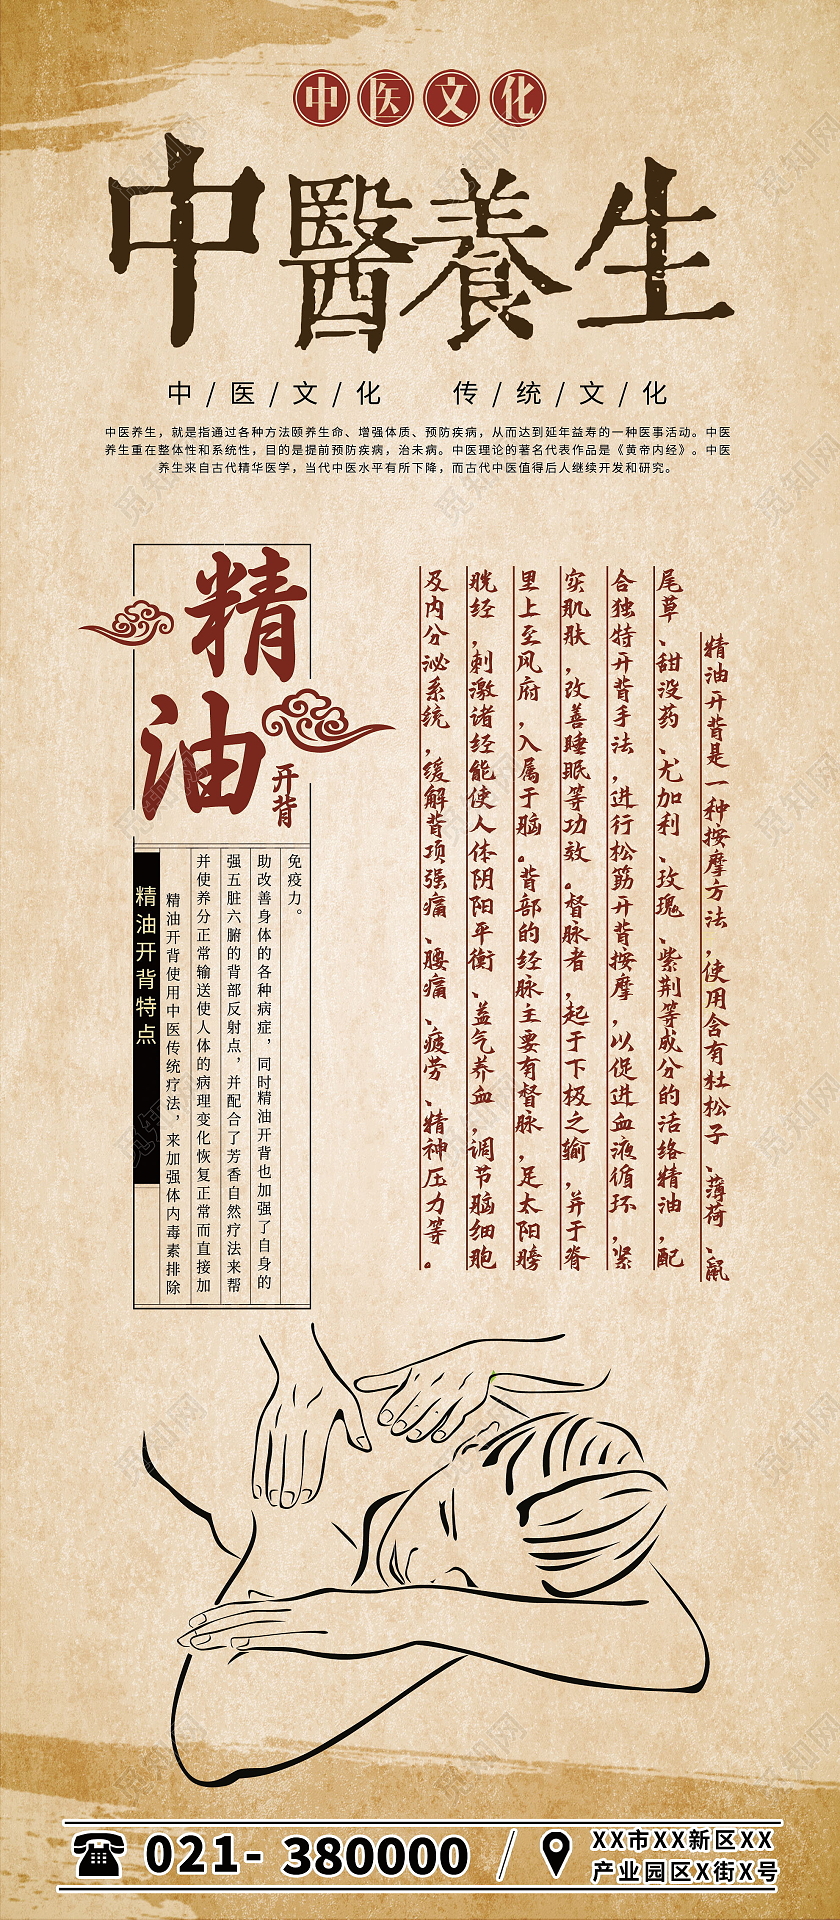 中医文化
中醫養生
中/医/文/化 传/统/文/化
中医养生，就是指通过各种方法颐养生命、增强体质、预防疾病，从而达到延年益寿的一种医事活动。中医
养生重在整体性和系统性，目的是提前预防疾病，治未病。中医理论的著名代表作品是《黄帝内经》。中医
养生来自古代精华医学，当代中医水平有所下降，而古代中医值得后人继续开发和研究。
精油
开背
精油开背是一种按摩方法，使用含有杜松子、薄荷、鼠
尾草、甜没药、尤加利、玫瑰、紫荆等成分的活络精油，配
合独特开背手法，进行松筋开背按摩，以促进血液循环，紧
实肌肤，改善睡眠等功效。督脉者，起于下极之输，并于脊
里上至风府，入属于脑。背部的经脉主要有督脉，足太阳膀
胱经，刺激诸经能使人体阴阳平衡、益气养血，调节脑细胞
及内分泌系统，缓解背项强痛、腰痛、疲劳、精神压力等。
精油开背特点
精油开背使用中医传统疗法，来加强体内毒素排除
并使养分正常输送使人体的病理变化恢复正常而直接加
强五脏六腑的背部反射点，并配合了芳香自然疗法来帮
助改善身体的各种病症，同时精油开背也加强了自身的
免疫力。
021- 380000
XX市XX新区XX
产业园区X街X号
觅知网